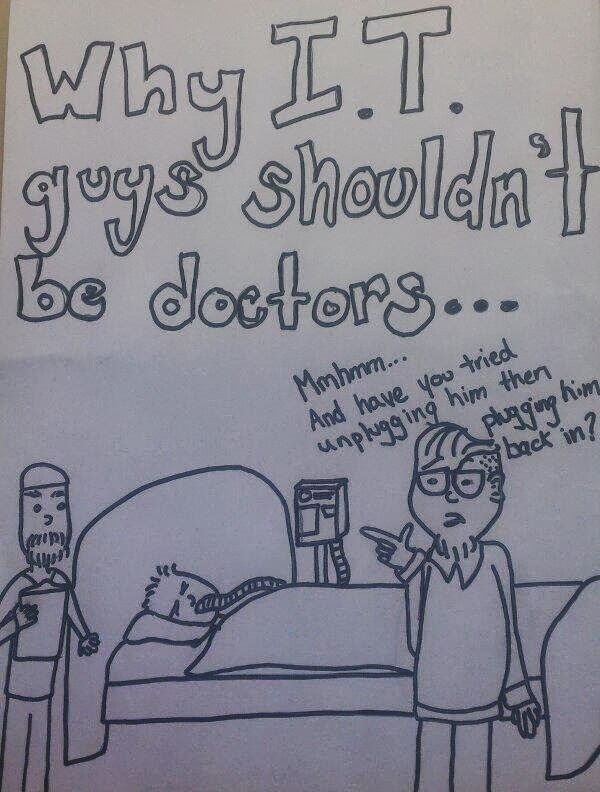 Why I.T.
guys shouldn't
be doctors...
Mmhmm...
And have you tried
unplugging him then
plugging him
back in?